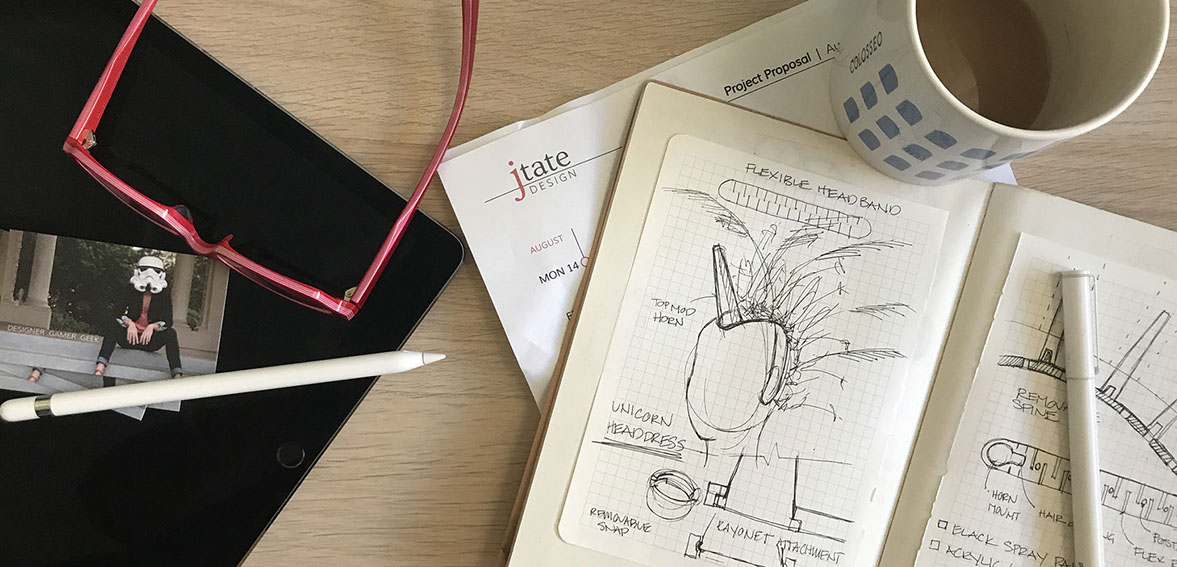 COLOSSEO
Project Proposal | Au
jtate
DESIGN
AUGUST
MON 14
DESIGNER GAMER GEEK
FLEXIBLE HEADBAND
TOP MOD
HORN
UNICORN
HEADDRESS
REMOVABLE
SNAP
BAYONET ATTACHMENT
SPINE
HORN
MOUNT
HAIR
POST
FLEX
BLACK SPRAY
ACRYLIC